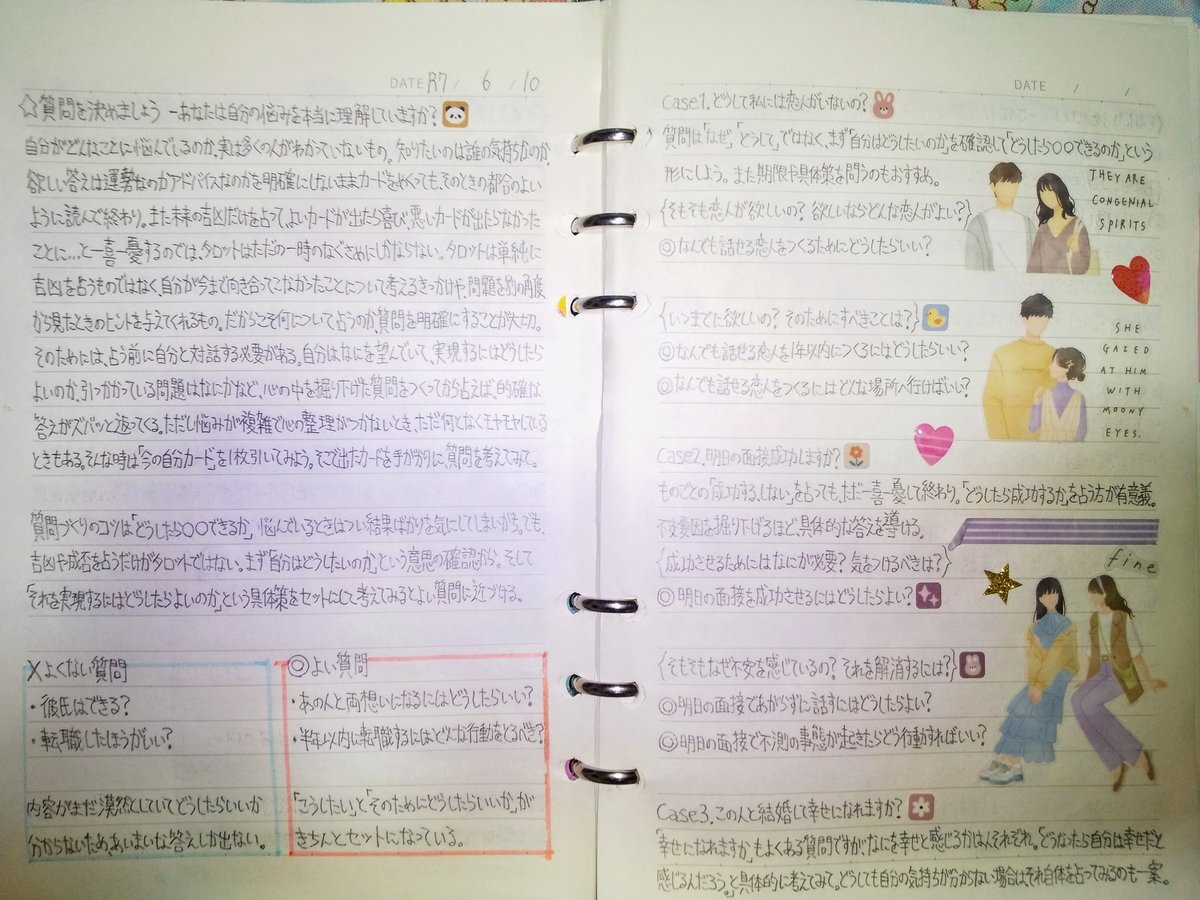 DATE R7 / 6 / 10
☆質問を決めましょう −あなたは自分の悩みを本当に理解していますか？
自分がどんなことに悩んでいるのか、実は多くの人がわかっていないもの。知りたいのは誰の気持ちなのか、
欲しい答えは運勢なのかアドバイスなのかを明確にしないままカードをめくっても、そのときの都合のよい
ように読んで終わり。また未来の吉凶だけを占って、よいカードが出たら喜び、悪いカードが出たらなかった
ことに…と一喜一憂するのでは、タロットはただの一時のなぐさめにしかならない。タロットは単純に
吉凶を占うものではなく、自分が今まで向き合ってこなかったことについて考えるきっかけや、問題を別の角度
から見たときのヒントを与えてくれるもの。だからこそ何について占うのか、質問を明確にすることが大切。
そのためには、占う前に自分と対話する必要がある。自分はなにを望んでいて、実現するにはどうしたら
よいのか、引っかかっている問題はなにかなど、心の中を掘り下げた質問をつくってから占えば、的確な
答えがズバッと返ってくる。ただし悩みが複雑で心の整理がつかないとき、ただ何となくモヤモヤしている
ときもある。そんな時は「今の自分カード」を1枚引いてみよう。そこで出たカードを手がかりに、質問を考えてみて。
質問づくりのコツは「どうしたら〇〇できるか」。悩んでいるときはつい結果ばかりを気にしてしまいがち。でも、
吉凶や成否を占うだけがタロットではない。まず「自分はどうしたいのか」という意思の確認から。そして
「それを実現するにはどうしたらよいのか」という具体策をセットにして考えてみるとよい質問に近づける。
×よくない質問
・彼氏はできる？
・転職したほうがいい？
内容がまだ漠然としていてどうしたらいいか
分からないため、あいまいな答えしか出ない。
◎よい質問
・あの人と両想いになるにはどうしたらいい？
・半年以内に転職するには、どんな行動をとるべき？
「こうしたい」と「そのためにどうしたらいいか」が
きちんとセットになっている。
DATE / /
Case1.どうして私には恋人がいないの？
質問は「なぜ」「どうして」ではなく、まず「自分はどうしたいのか」を確認して「どうしたら〇〇できるのか」という
形にしよう。また期限や具体策を問うのもおすすめ。
{そもそも恋人が欲しいの？ 欲しいならどんな恋人がよい？}
◎なんでも話せる恋人をつくるためにどうしたらいい？
THEY ARE
CONGENIAL
SPIRITS
{いつまでに欲しいの？ そのためにすべきことは？}
◎なんでも話せる恋人を1年以内につくるにはどうしたらいい？
◎なんでも話せる恋人をつくるにはどんな場所へ行けばいい？
SHE
GAZED
AT HIM
WITH
MOONY
EYES.
Case2.明日の面接成功しますか？
ものごとの「成功する、しない」を占っても、ただ一喜一憂して終わり。「どうしたら成功するか」を占う方が有意義。
不安要因を掘り下げるほど、具体的な答えを導ける。
{成功させるためにはなにが必要？ 気をつけるべきは？}
◎明日の面接を成功させるにはどうしたらよい？
fine
{そもそもなぜ不安を感じているの？ それを解消するには？}
◎明日の面接であがらずに話すにはどうしたらよい？
◎明日の面接で不測の事態が起きたらどう行動すればいい？
Case3.この人と結婚して幸せになれますか？
「幸せになれますか」もよくある質問ですが、なにを幸せと感じるかは人それぞれ。「どうなったら自分は幸せだと
感じるんだろう。」と具体的に考えてみて。どうしても自分の気持ちが分からない場合はそれ自体を占ってみるのも一案。